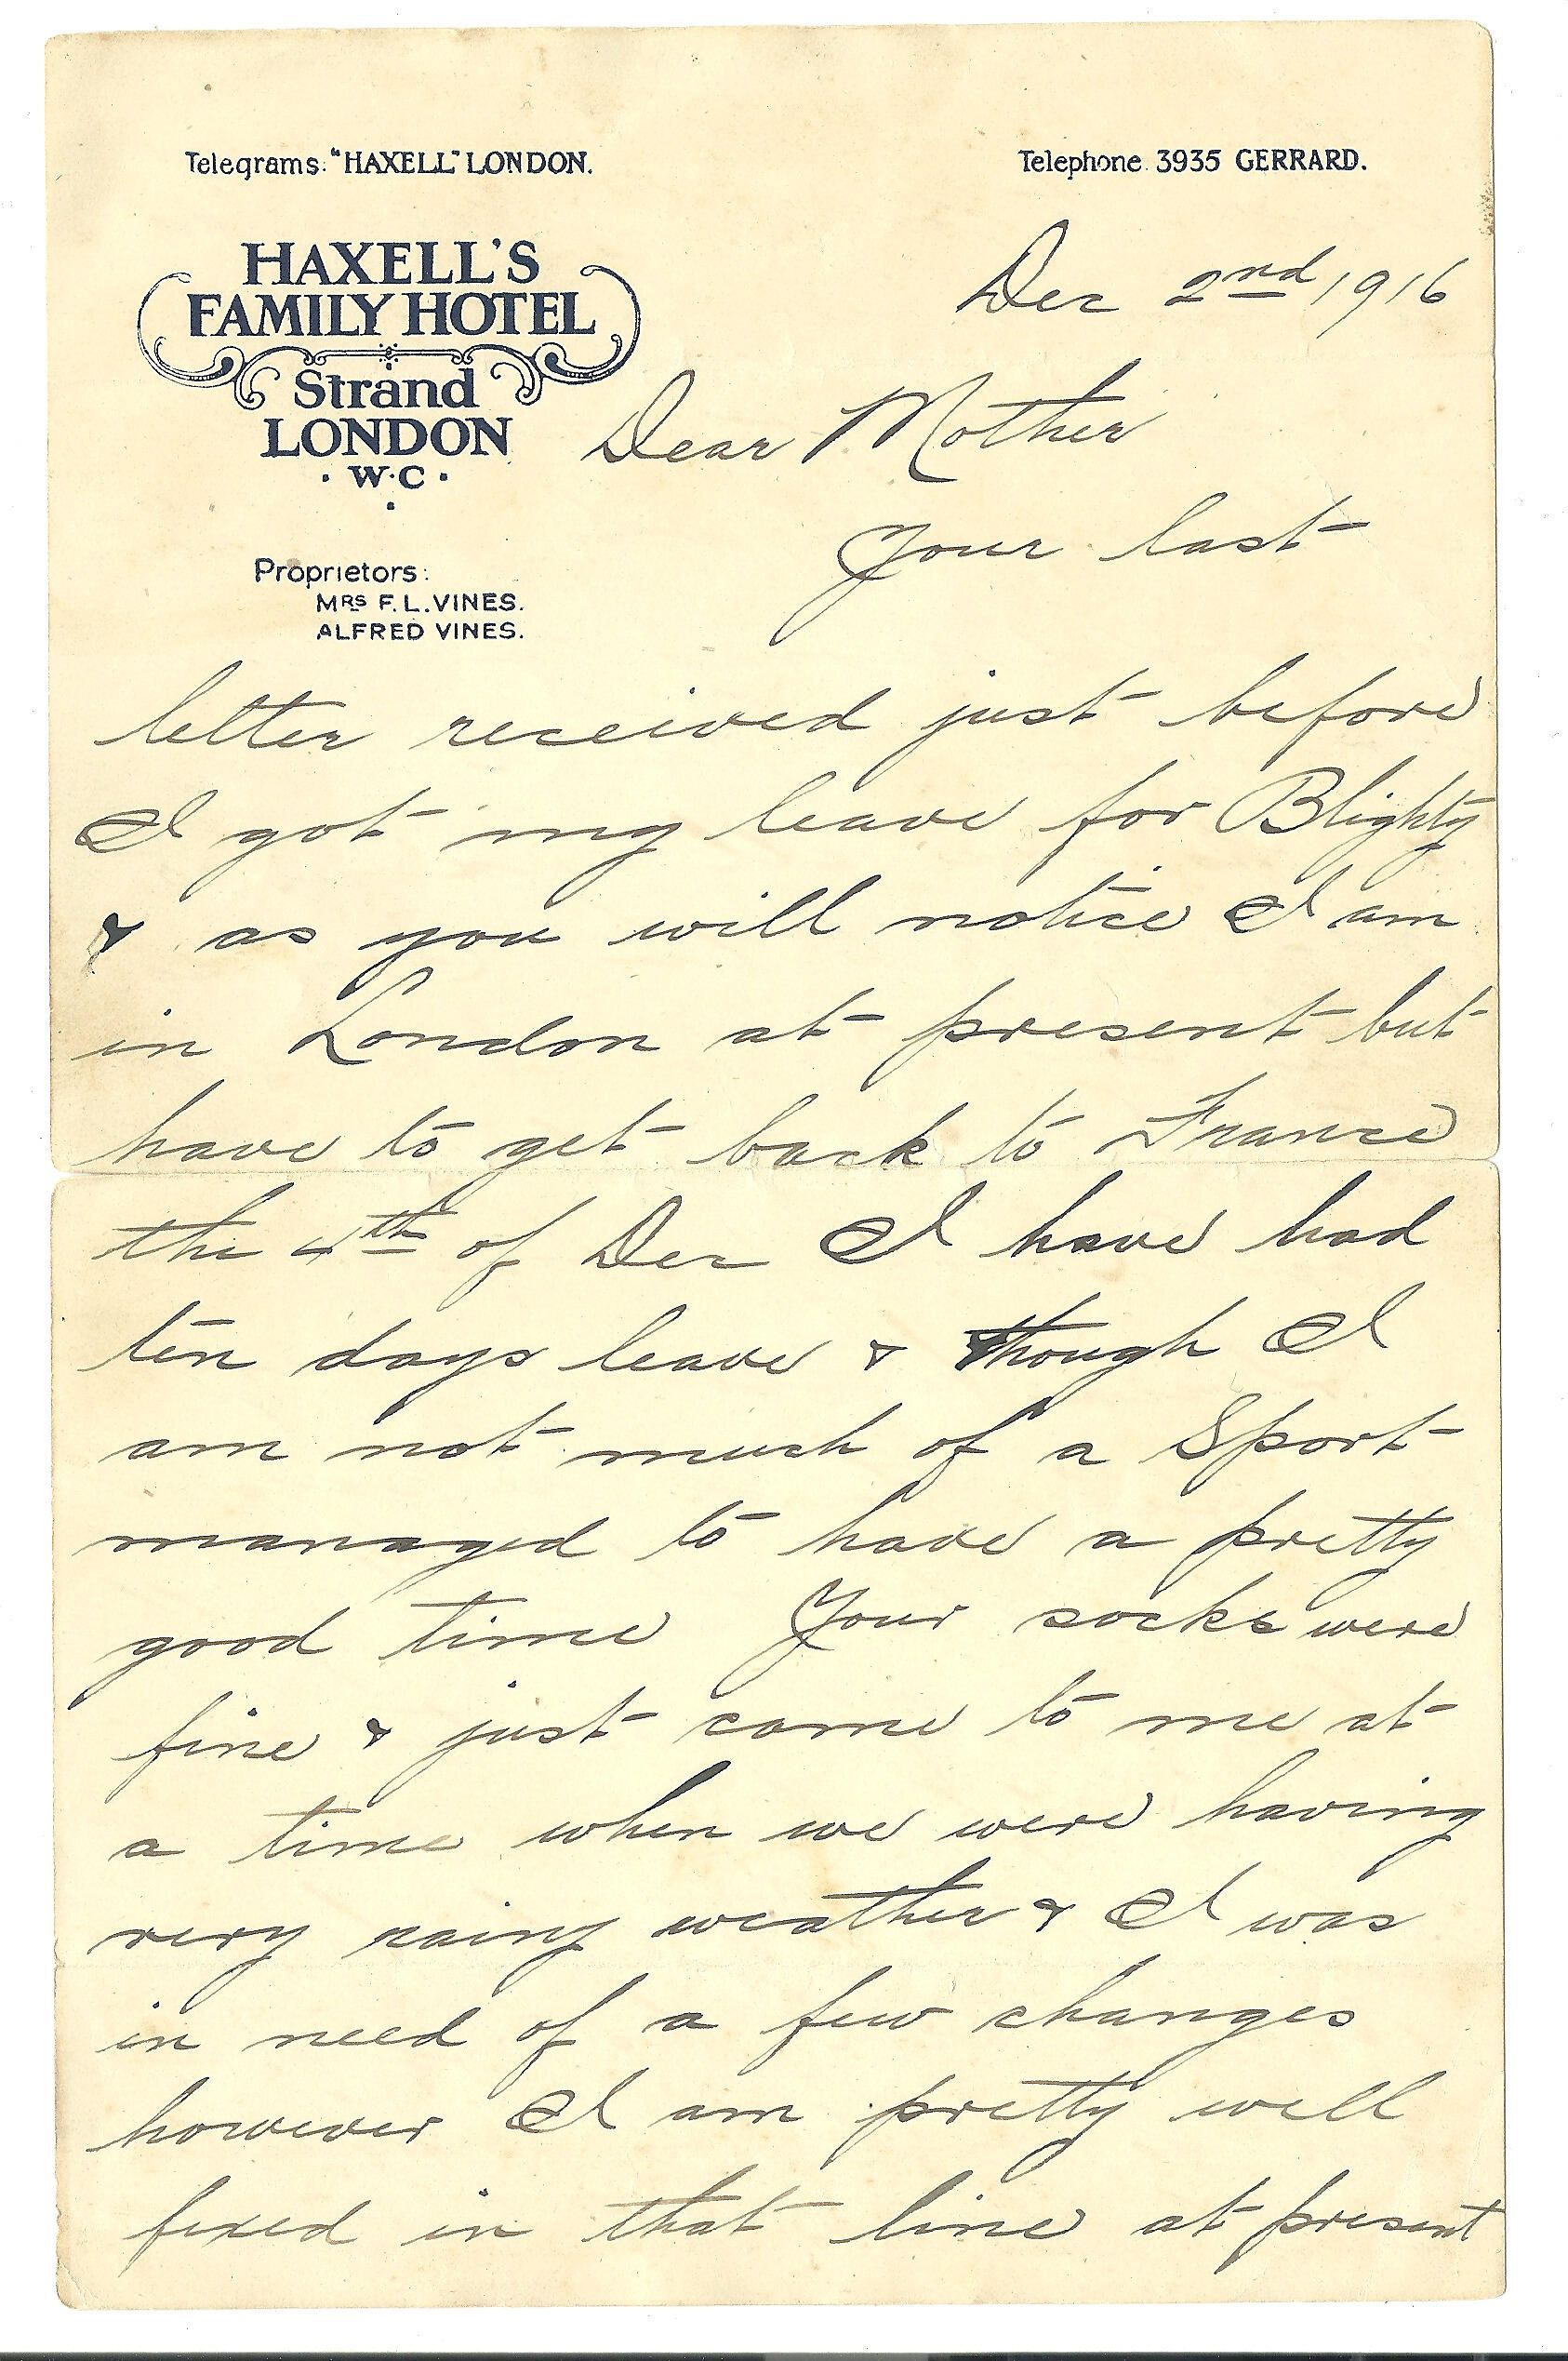 Telegrams: "HAXELL" LONDON.
Telephone 3935 GERRARD.
HAXELL'S
FAMILY HOTEL
Strand
LONDON
· W·C ·
Proprietors:
MRS F. L. VINES.
ALFRED VINES.
Dec 2nd 1916
Dear Mother
Your last
letter received just before
I got my leave for Blighty
& as you will notice I am
in London at present but
have to get back to France
the 4th of Dec I have had
ten days leave & though I
am not much of a Sport
managed to have a pretty
good time Your socks were
fine & just came to me at
a time when we were having
very rainy weather & I was
in need of a few changes
however I am pretty well
fixed in that line at present